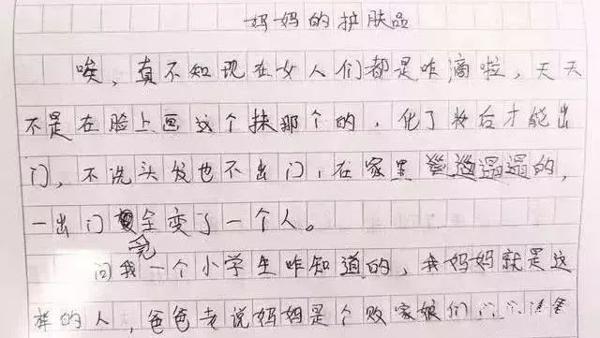 妈妈的护肤品
唉，真不知现在女人们都是咋滴啦，天天
不是在脸上画这个抹那个的，化了妆后才能出
门，不洗头发也不出门，在家里邋邋遢遢的，
一出门完全变了一个人。
问我一个小学生咋知道的，我妈妈就是这
样的人，爸爸老说妈妈是个败家娘们